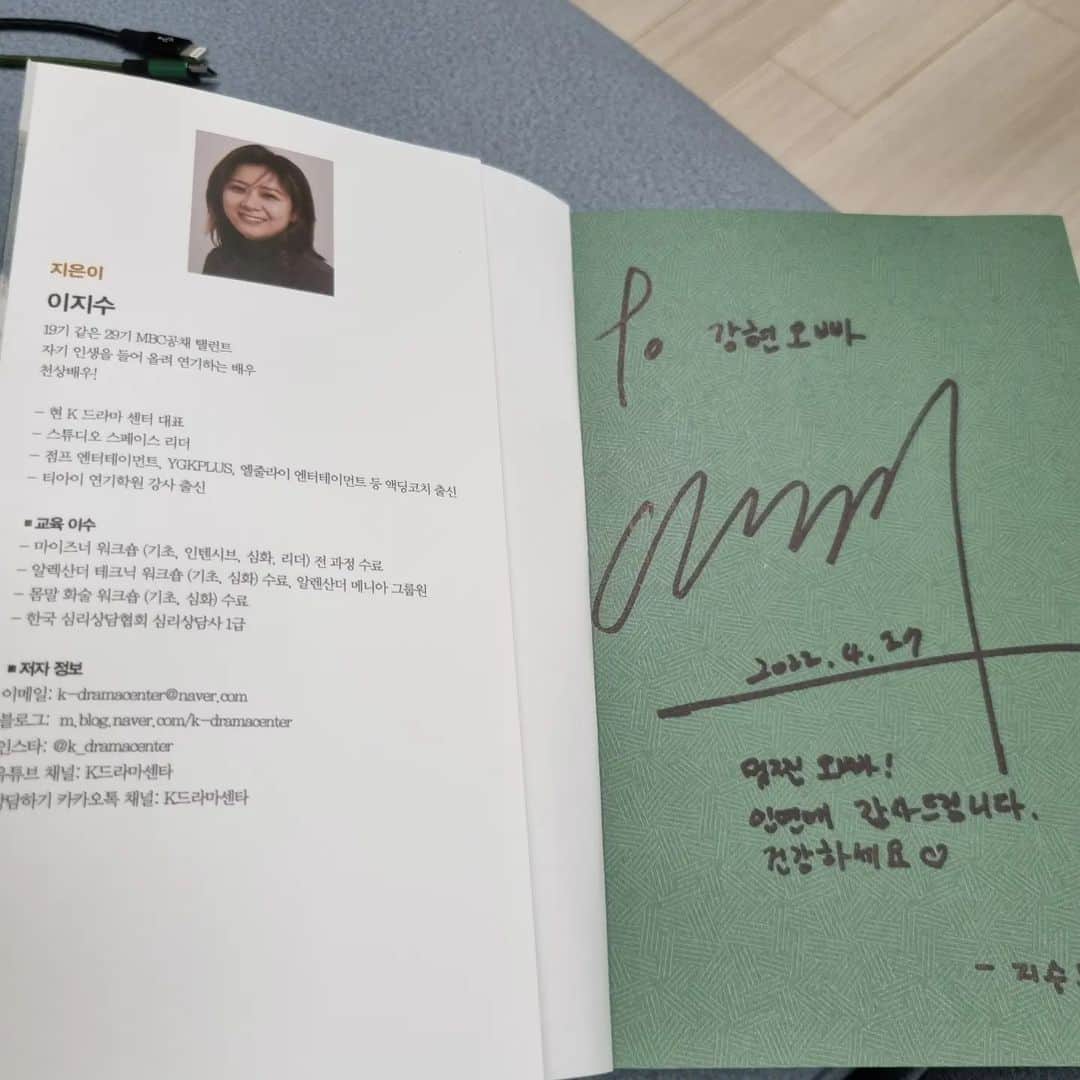 지은이
이지수
19기 같은 29기 MBC공채 탤런트
자기 인생을 들어 올려 연기하는 배우
천상배우!
- 현 K 드라마 센터 대표
- 스튜디오 스페이스 리더
- 점프 엔터테이먼트, YGKPLUS, 엘줄라이 엔터테이먼트 등 액딩코치 출신
- 티아이 연기학원 강사 출신
■ 교육 이수
- 마이즈너 워크숍 (기초, 인텐시브, 심화, 리더) 전 과정 수료
- 알렉산더 테크닉 워크숍 (기초, 심화) 수료, 알렌산더 메니아 그룹원
- 몸말 화술 워크숍 (기초, 심화) 수료
- 한국 심리상담협회 심리상담사 1급
■ 저자 정보
이메일: k-dramacenter@naver.com
블로그: m.blog.naver.com/k-dramacenter
인스타: @k_dramacenter
유튜브 채널: K드라마센타
상담하기 카카오톡 채널: K드라마센타
To 강현오빠
2022.4.27
멋찐 오빠!
인연에 감사드립니다.
건강하세요♡
- 지수